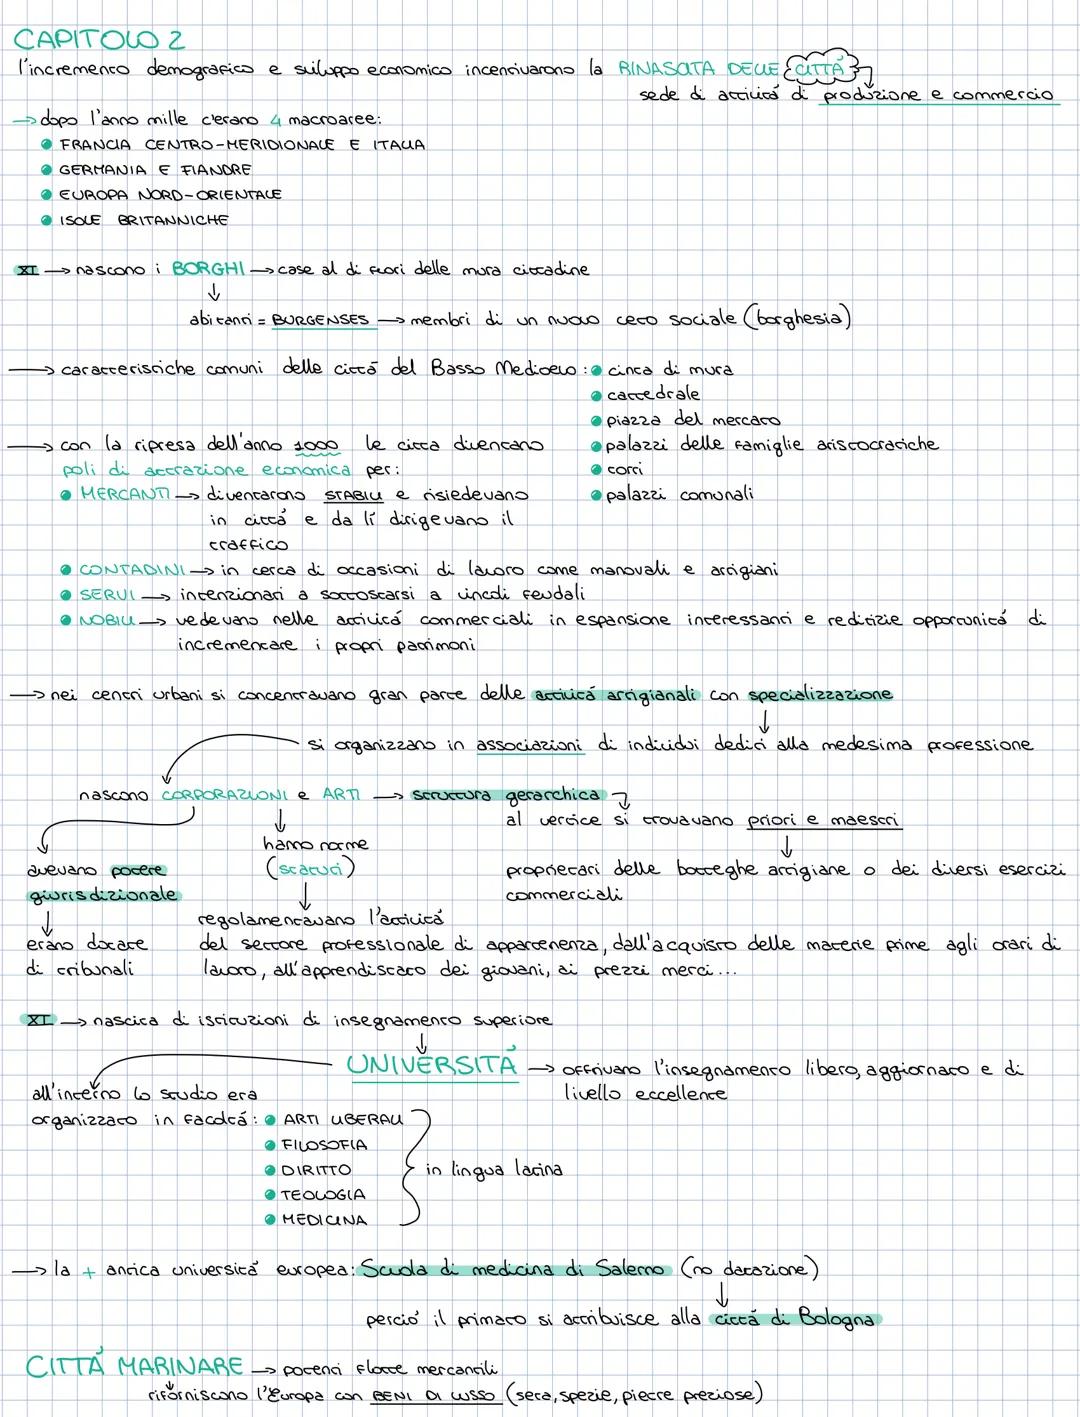 CAPITOLO 2
l'incremento demografico e sviluppo economico incentivarono la RINASCITA DELLE CITTÀ
sede di attività di produzione e commercio
→ dopo l'anno mille c'erano 4 macroaree:
• FRANCIA CENTRO-MERIDIONALE E ITALIA
• GERMANIA E FIANDRE
• EUROPA NORD-ORIENTALE
• ISOLE BRITANNICHE
XI → nascono i BORGHI → case al di fuori delle mura cittadine
↓
abitanti = BURGENSES → membri di un nuovo ceto sociale (borghesia)
→ caratteristiche comuni delle città del Basso Medioevo: • cinta di mura
• cattedrale
• piazza del mercato
• palazzi delle famiglie aristocratiche
• torri
• palazzi comunali
→ con la ripresa dell'anno 1000 le città diventano
poli di attrazione economica per:
• MERCANTI → diventarono STABILI e risiedevano
in città e da lí dirigevano il
traffico
• CONTADINI → in cerca di occasioni di lavoro come manovali e artigiani
• SERVI → intenzionati a sottostarsi a vincoli feudali
• NOBILI → vedevano nelle attivitá commerciali in espansione interessanti e reditizie opportunitá di
incrementare i propri patrimoni
→ nei centri urbani si concentravano gran parte delle attivitá artigianali con specializzazione
↓
si organizzano in associazioni di individui dediti alla medesima professione
nascono CORPORAZIONI e ARTI → struttura gerarchica
al vertice si trovavano priori e maestri
↓
proprietari delle botteghe artigiane o dei diversi esercizi
commerciali
↓
hanno norme
(statuti)
↓
regolamentavano l'attivitá
del settore professionale di appartenenza, dall'acquisto delle materie prime agli orari di
lavoro, all'apprendistato dei giovani, ai prezzi merci...
avevano potere
giurisdizionale
↓
erano dotate
di tribunali
XI → nascita di istituzioni di insegnamento superiore
↓
UNIVERSITÁ → offrivano l'insegnamento libero, aggiornato e di
livello eccellente
all'interno lo studio era
organizzato in facoltá: • ARTI LIBERALI
• FILOSOFIA
• DIRITTO
• TEOLOGIA
• MEDICINA
in lingua latina
→ la + antica universitá europea: Scuola di medicina di Salerno (no datazione)
↓
perció il primato si attribuisce alla cittá di Bologna
CITTÁ MARINARE → potenti flotte mercantili
↓
riforniscono l'Europa con BENI DI LUSSO (seta, spezie, pietre preziose)